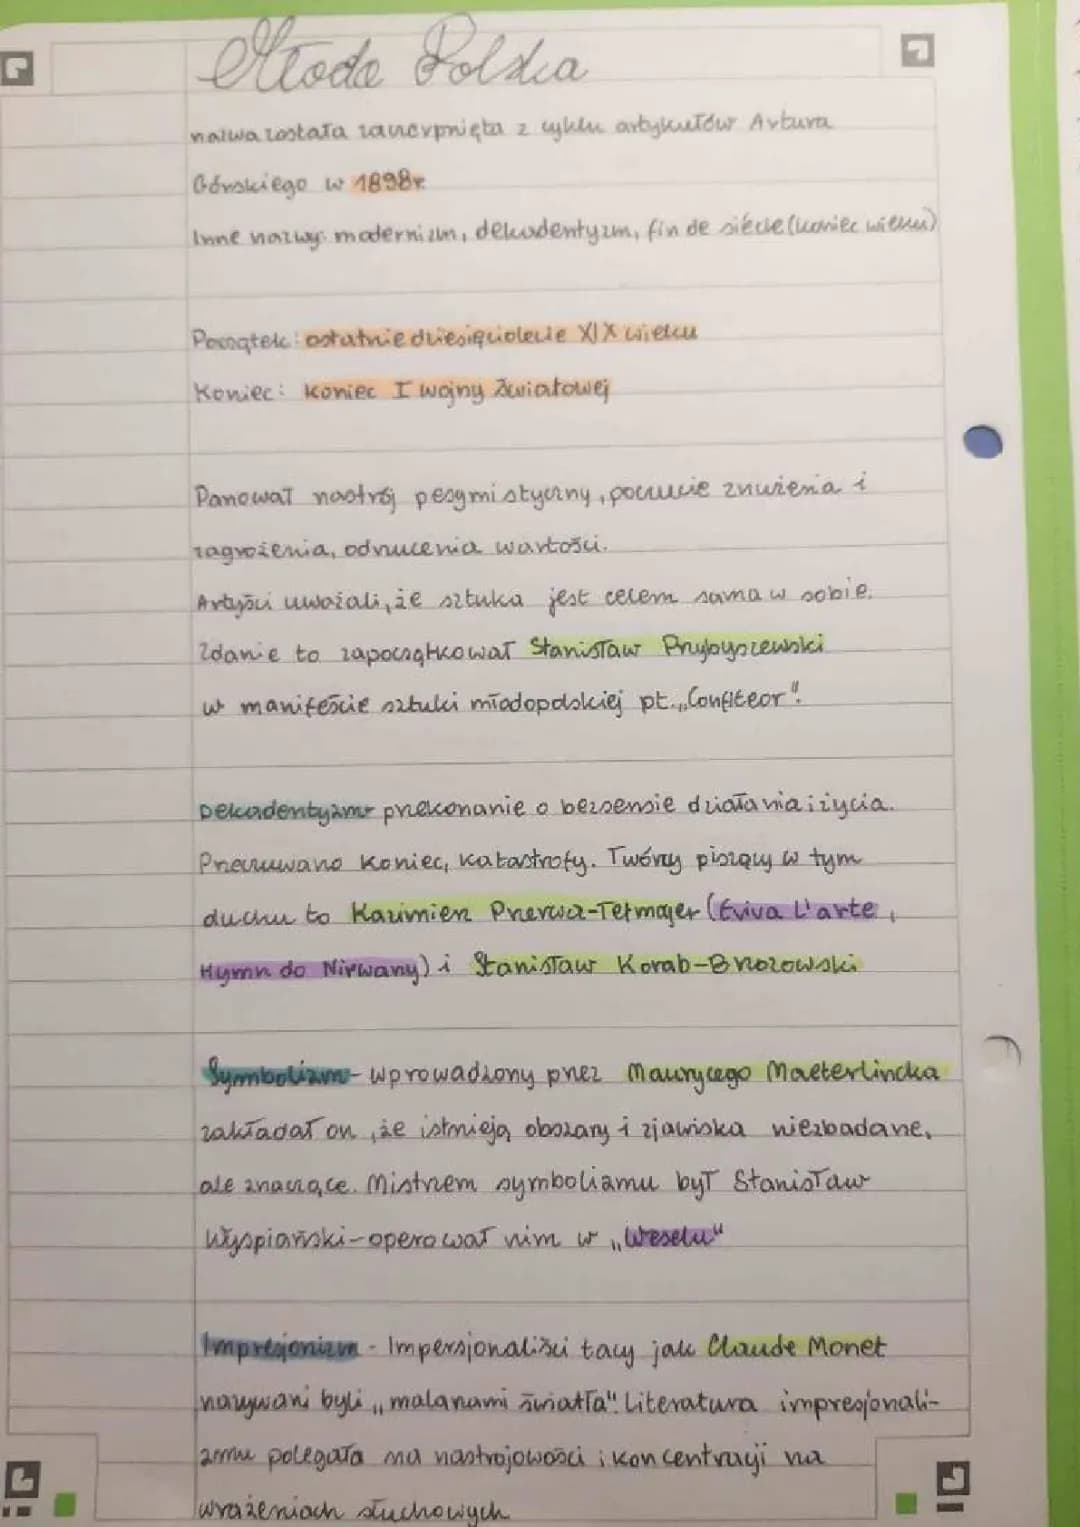 Młoda Polska
nazwa została zaczerpnięta z cyklu artykułów Artura
Górskiego w 1898r.
Inne nazwy: modernizm, dekadentyzm, fin de siécle (koniec wieku)
Początek: ostatnie dziesięciolecie XIX wieku
Koniec: koniec I wojny Światowej
Panował nastrój pesymistyczny, poczucie znużenia i
zagrożenia, odrzucenia wartości.
Artyści uważali, że sztuka jest celem sama w sobie.
Zdanie to zapoczątkował Stanisław Przybyszewski
w manifeście sztuki młodopolskiej pt. „Confiteor".
Dekadentyzm - przekonanie o bezsensie działania i życia.
Przeczuwano koniec, katastrofy. Twórcy piszący w tym
duchu to Kazimierz Przerwa-Tetmajer (Eviva L'arte,
Hymn do Nirwany) i Stanisław Korab-Brzozowski
Symbolizm - wprowadzony przez Maurycego Maeterlincka
zakładał on, że istnieją obszary i zjawiska niezbadane,
ale znaczące. Mistrzem symbolizmu był Stanisław
Wyspiański - operował nim w „Weselu"
Impresjonizm - Impersjonaliści tacy jak Claude Monet
nazywani byli „malarzami światła". Literatura impresjonali-
zmu polegała na nastrojowości i koncentracji na
wrażeniach słuchowych